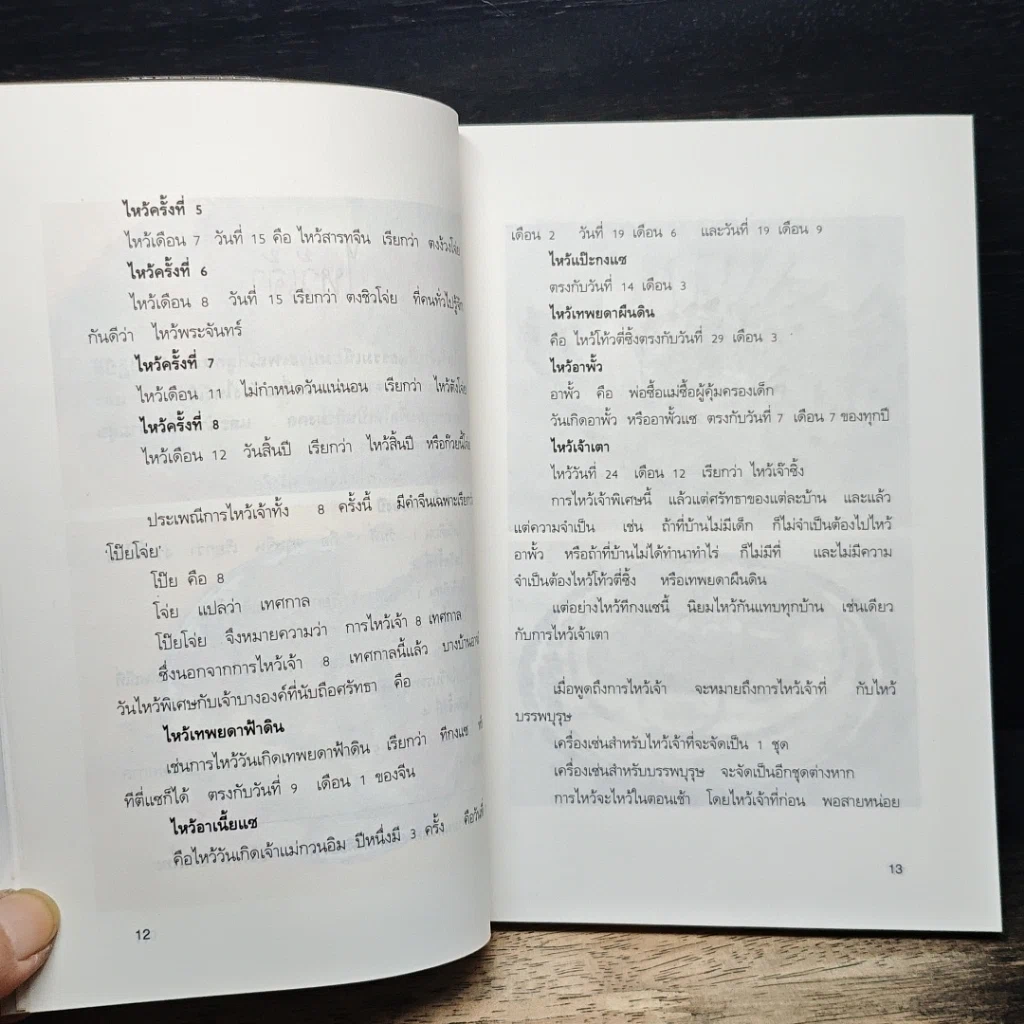 ไหว้ครั้งที่ 5
ไหว้เดือน 7 วันที่ 15 คือ ไหว้สารทจีน เรียกว่า ตงง้วงโจ่ย
ไหว้ครั้งที่ 6
ไหว้เดือน 8 วันที่ 15 เรียกว่า ตงชิวโจ่ย ที่คนทั่วไปรู้จัก
กันดีว่า ไหว้พระจันทร์
ไหว้ครั้งที่ 7
ไหว้เดือน 11 ไม่กำหนดวันแน่นอน เรียกว่า ไหว้ตังโจ่ย
ไหว้ครั้งที่ 8
ไหว้เดือน 12 วันสิ้นปี เรียกว่า ไหว้สิ้นปี
ประเพณีการไหว้เจ้าทั้ง 8 ครั้งนี้ มีคำจีนเฉพาะเรียกว่า
'โป๊ยโจ่ย'
โป๊ย คือ 8
โจ่ย แปลว่า เทศกาล
โป๊ยโจ่ย จึงหมายความว่า การไหว้เจ้า 8 เทศกาล
ซึ่งนอกจากการไหว้เจ้า 8 เทศกาลนี้แล้ว บางบ้านอาจมี
วันไหว้พิเศษกับเจ้าบางองค์ที่นับถือศรัทธา คือ
ไหว้เทพยดาฟ้าดิน
เช่นการไหว้วันเกิดเทพยดาฟ้าดิน เรียกว่า ทีกงแซ
ทีตี่แซก็ได้ ตรงกับวันที่ 9 เดือน 1 ของจีน
ไหว้อาเนี้ยแซ
คือไหว้วันเกิดเจ้าแม่กวนอิม ปีหนึ่งมี 3 ครั้ง คือวันที่
12
เดือน 2 วันที่ 19 เดือน 6 และวันที่ 19 เดือน 9
ไหว้แป๊ะกงแซ
ตรงกับวันที่ 14 เดือน 3
ไหว้เทพยดาผืนดิน
คือ ไหว้โท้วตี่ซิ้งตรงกับวันที่ 29 เดือน 3
ไหว้อาพั้ว
อาพั้ว คือ พ่อซื้อแม่ซื้อผู้คุ้มครองเด็ก
วันเกิดอาพั้ว หรืออาพั้วแซ ตรงกับวันที่ 7 เดือน 7 ของทุกปี
ไหว้เจ้าเตา
ไหว้วันที่ 24 เดือน 12 เรียกว่า ไหว้เจ๊าซิ้ง
การไหว้เจ้าพิเศษนี้ แล้วแต่ศรัทธาของแต่ละบ้าน และแล้ว
แต่ความจำเป็น เช่น ถ้าที่บ้านไม่มีเด็ก ก็ไม่จำเป็นต้องไปไหว้
อาพั้ว หรือถ้าที่บ้านไม่ได้ทำนาทำไร่ ก็ไม่มีที่ และไม่มีความ
จำเป็นต้องไหว้โท้วตี่ซิ้ง หรือเทพยดาผืนดิน
แต่อย่างไหว้ทีกงแซนี้ นิยมไหว้กันแทบทุกบ้าน เช่นเดียว
กับการไหว้เจ้าเตา
เมื่อพูดถึงการไหว้เจ้า จะหมายถึงการไหว้เจ้าที่ กับไหว้
บรรพบุรุษ
เครื่องเซ่นสำหรับไหว้เจ้าที่จะจัดเป็น 1 ชุด
เครื่องเซ่นสำหรับบรรพบุรุษ จะจัดเป็นอีกชุดต่างหาก
การไหว้จะไหว้ในตอนเช้า โดยไหว้เจ้าที่ก่อน พอสายหน่อย
13